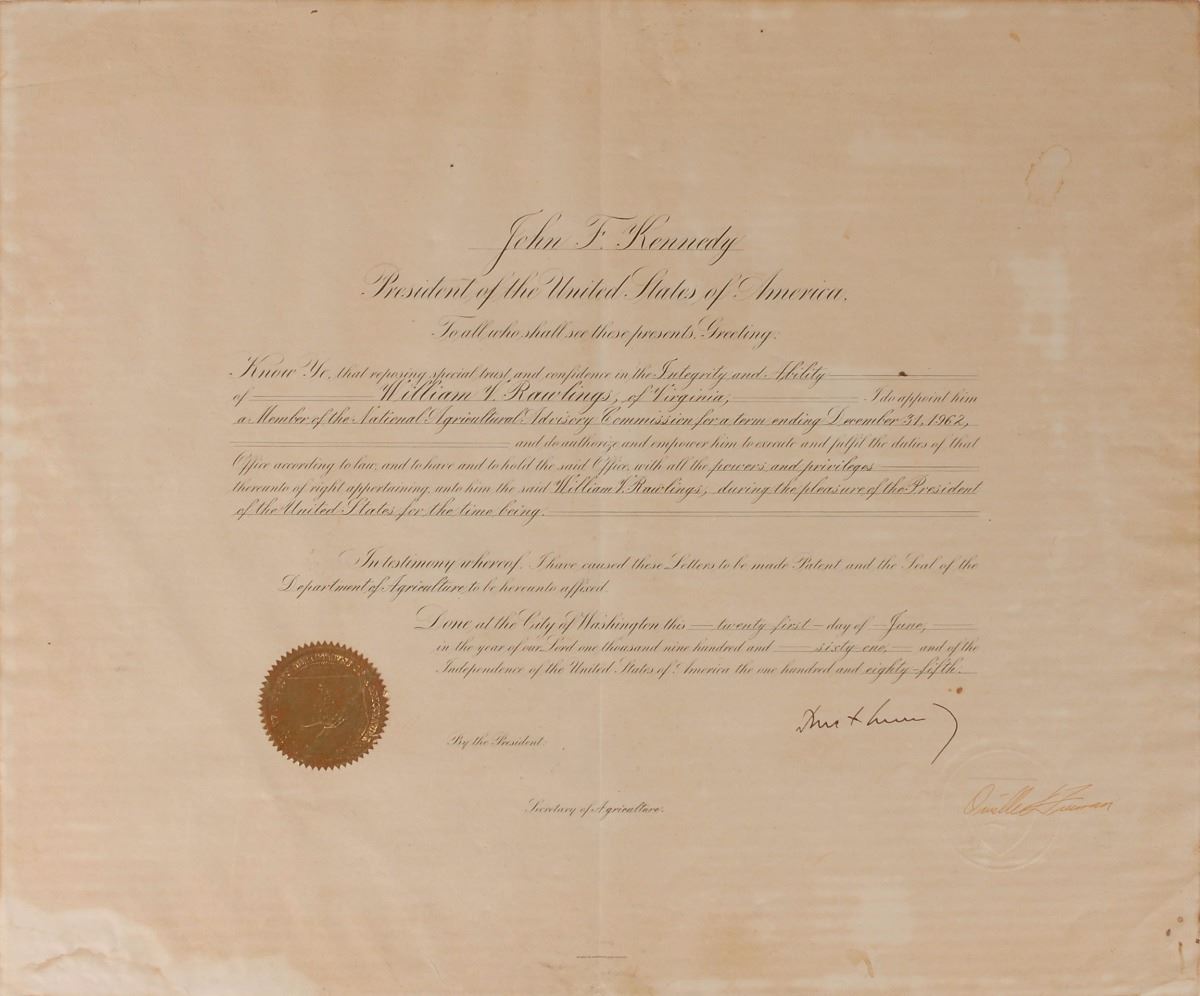 John F. Kennedy
President of the United States of America.
To all who shall see these presents, Greeting:
Know Ye, that reposing special trust and confidence in the Integrity and Ability
of William V. Rawlings, of Virginia, I do appoint him
a Member of the National Agricultural Advisory Commission for a term ending December 31, 1962,
and do authorize and empower him to execute and fulfil the duties of that
Office according to law, and to have and to hold the said Office, with all the powers and privileges
thereunto of right appertaining, unto him the said William V. Rawlings, during the pleasure of the President
of the United States for the time being.
In testimony whereof, I have caused these Letters to be made Patent and the Seal of the
Department of Agriculture to be hereunto affixed.
Done at the City of Washington this twenty first day of June,
in the year of our Lord one thousand nine hundred and sixty one, and of the
Independence of the United States of America the one hundred and eighty-fifth.
By the President:
Orville L Freeman
Secretary of Agriculture.